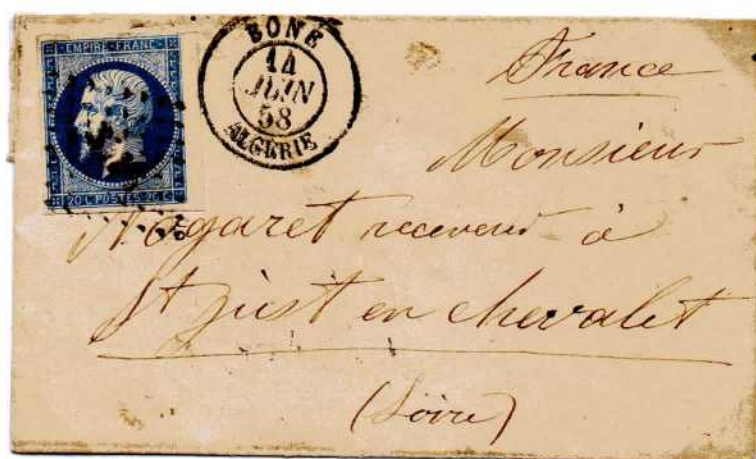 EMPIRE FRANC
20 C. POSTES 20 C.
BONE
14
JUIN
58
ALGÉRIE
France
Monsieur
Nogaret receveur à
St just en chevalet
(Loire)